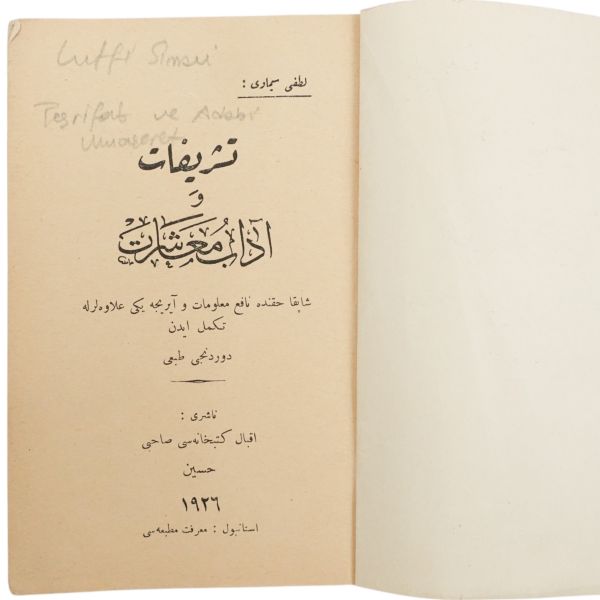 Lutfi Simavi
لطفی سیماوی :
Teşrifat ve Adabı
Muaşeret
تشریفات
و
آداب معاشرت
شاپقا حقنده نافع معلومات و آیریجه یکی علاوه‌لرله
تکمل ایدن
دوردنجی طبعی
ناشری :
اقبال کتبخانه‌سی صاحبی
حسین
١٩٢٦
استانبول : معرفت مطبعه‌سی